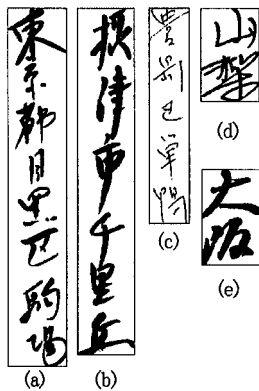 東京都目黒区駒場
(a)
摂津市千里丘
(b)
豊島区巣鴨
(c)
山梨
(d)
大阪
(e)